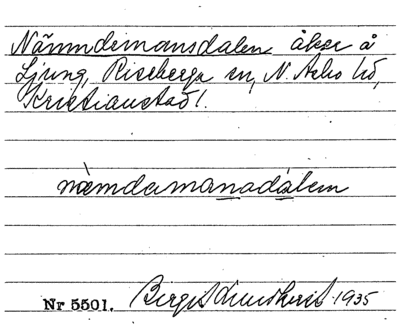 Nämndemansdalen åker å
Ljung, Riseberga sn, N. Åsbo hd,
Kristianstad l.
nämdamanadálem
Nr 5501. Birgit Lindkvist 1935